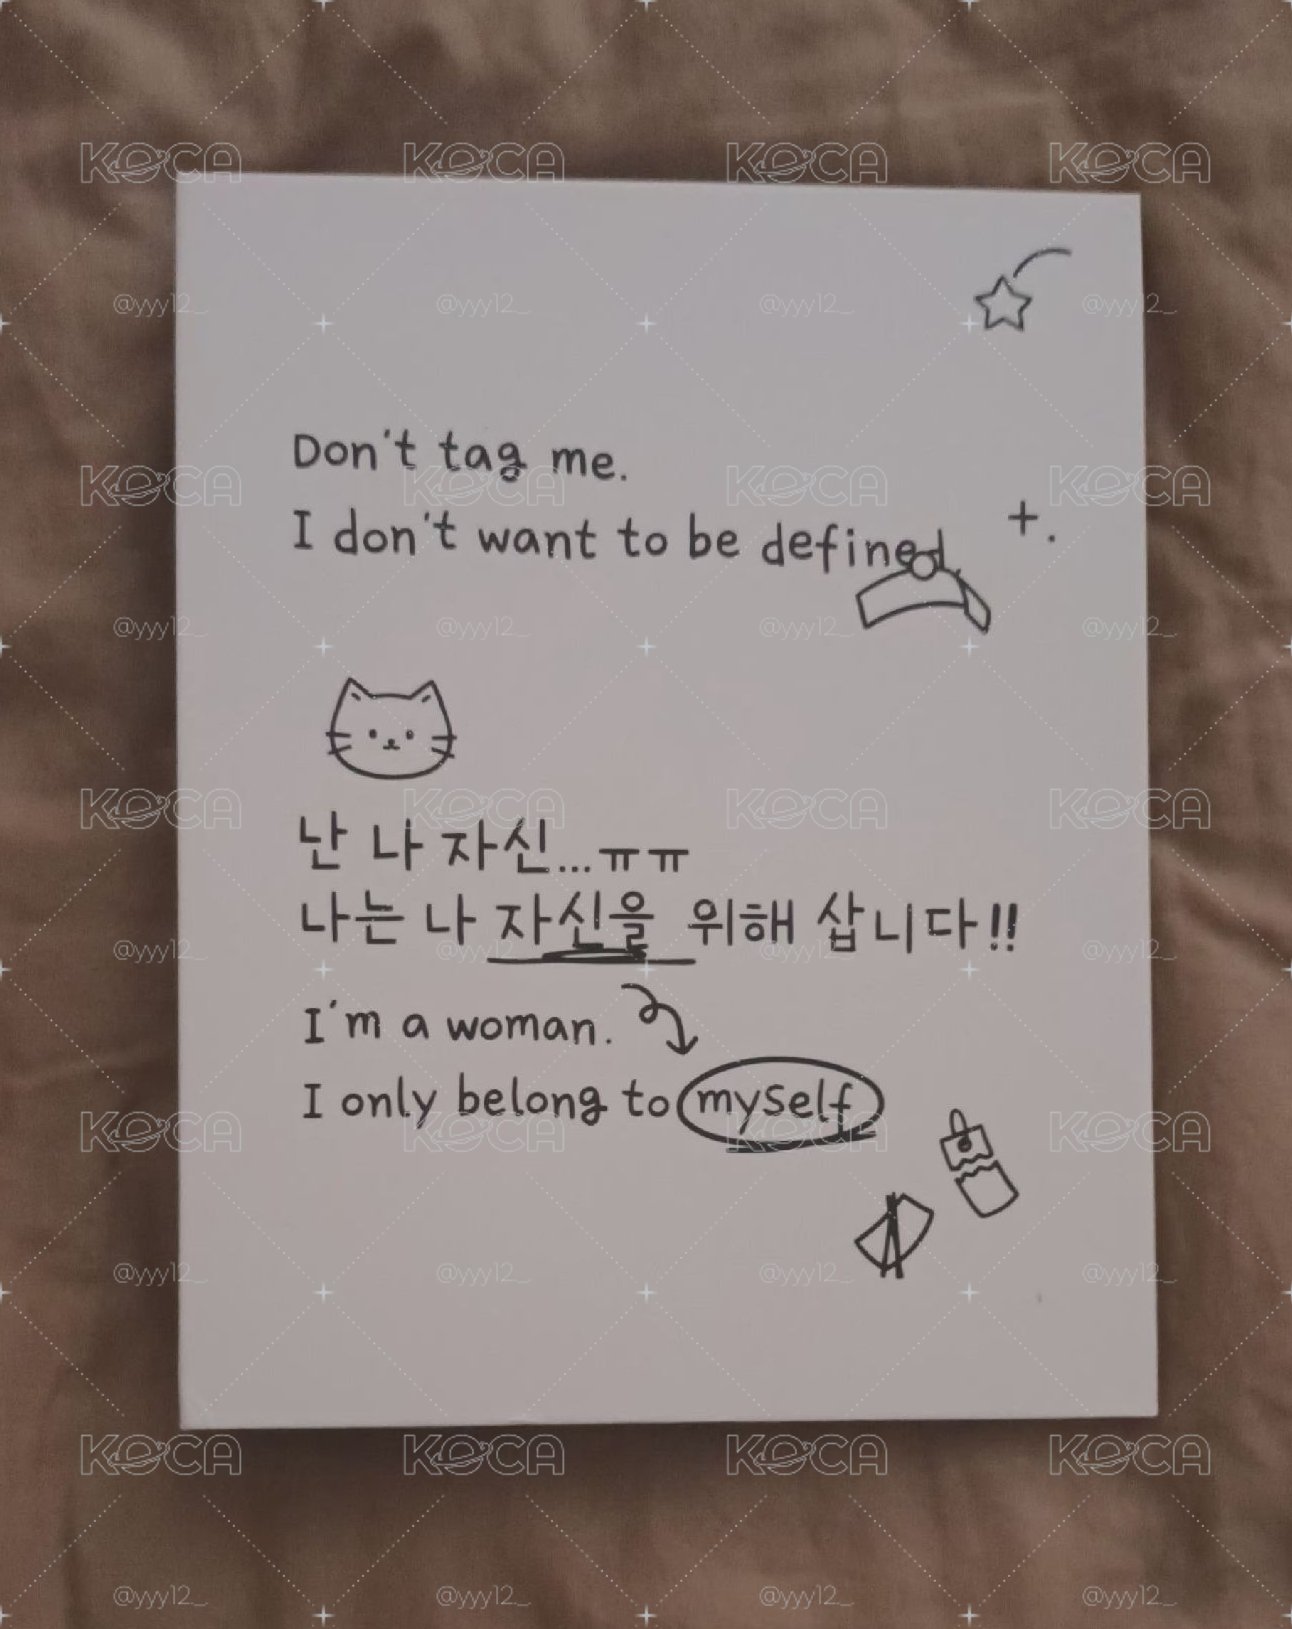 Don't tag me.
I don't want to be defined.
난 나 자신...ㅠㅠ
나는 나 자신을 위해 삽니다!!
I'm a woman.
I only belong to myself
KOCA
@yyy12_